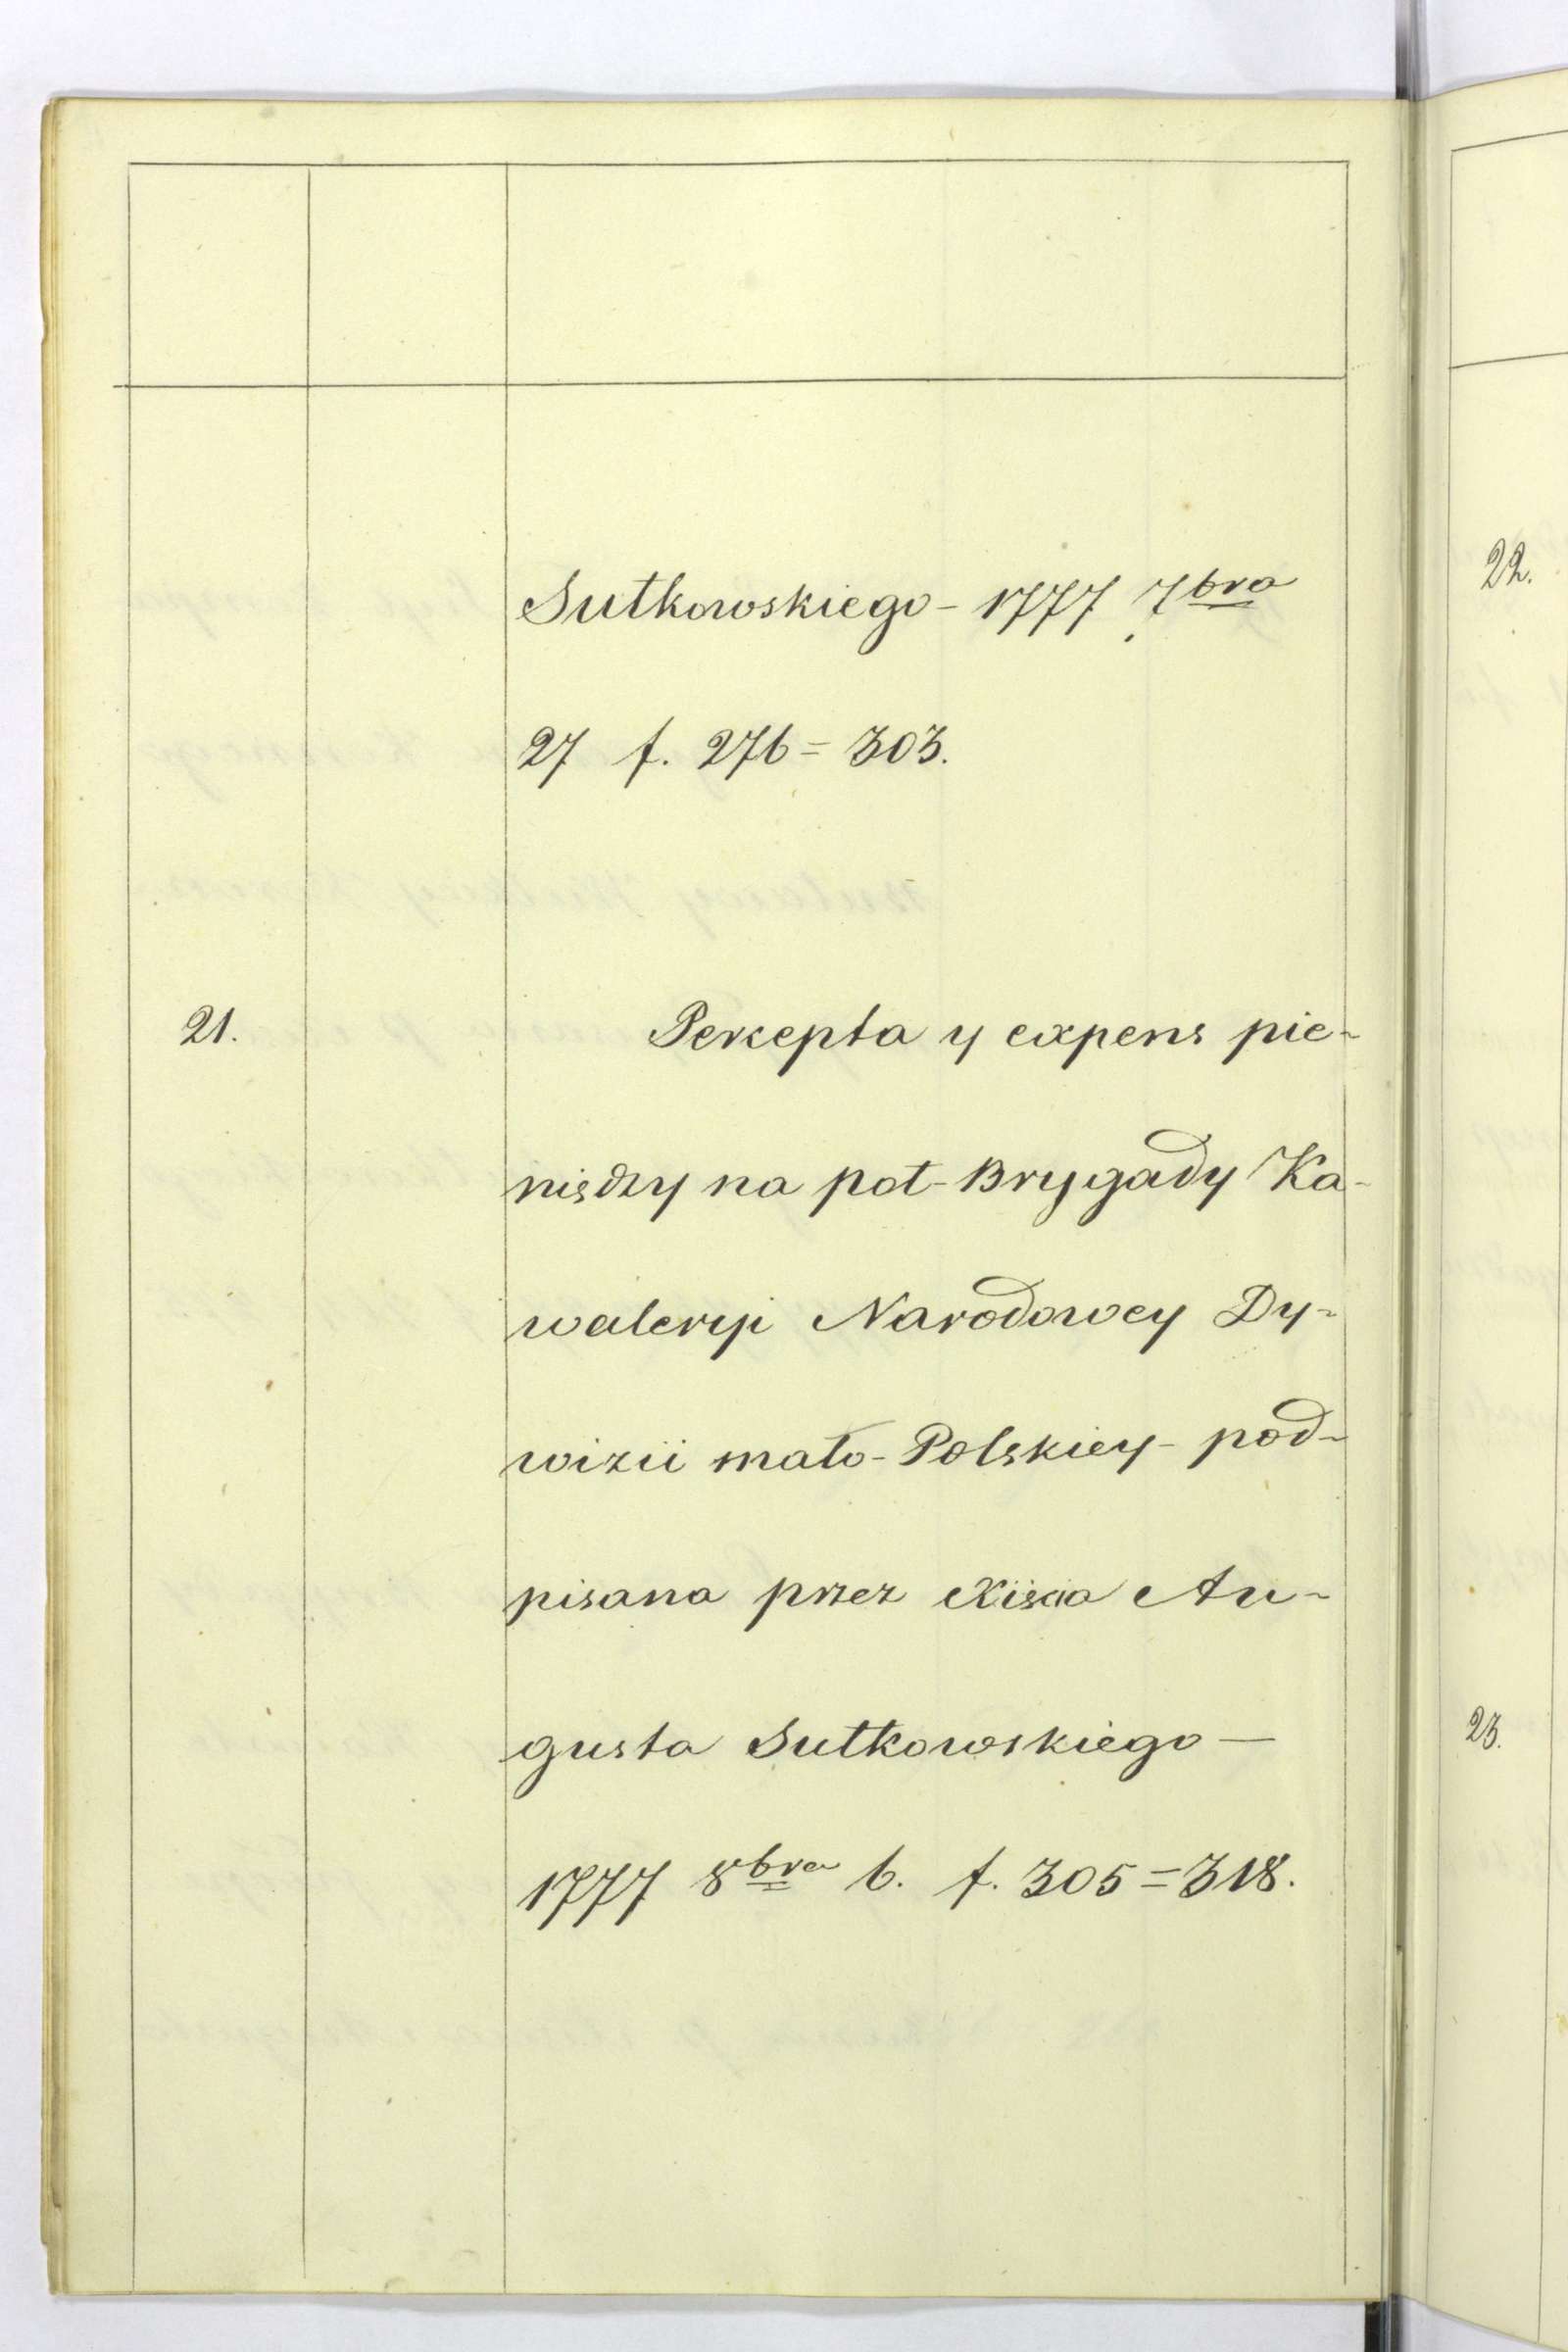 Sułkowskiego - 1777 7bra
27 f. 276 = 303.
21. Percepta y expens pie-
niędzy na poł-Brygady Ka-
waleryi Narodowey Dy-
wizii mało-Polskiey - pod-
pisana przez Xięcia Au-
gusta Sułkowskiego —
1777 8bra 6. f. 305 = 318.
22.
23.